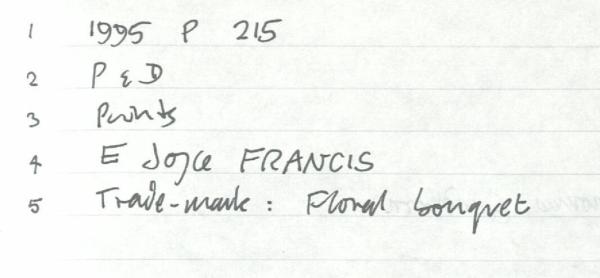 1 1995 P 215
2 P & D
3 Prints
4 E Joyce FRANCIS
5 Trade-mark : Floral bouquet